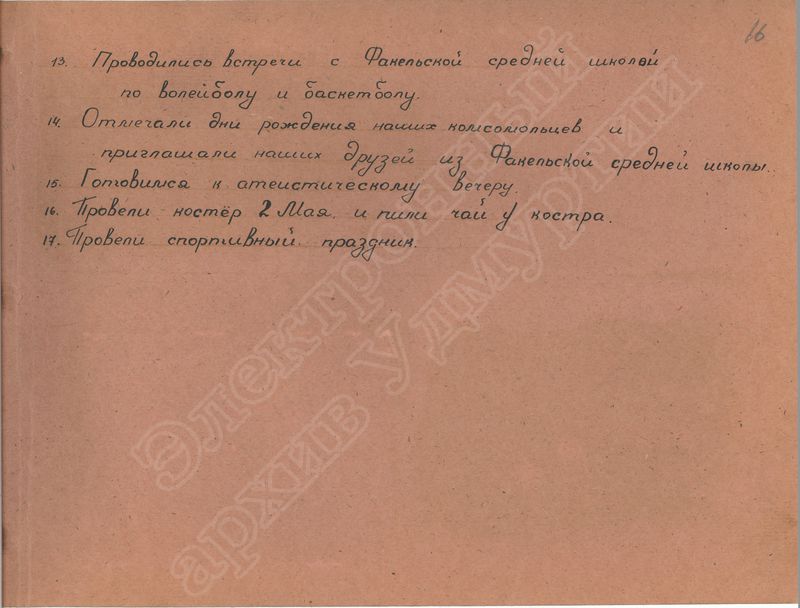 16
13. Проводились встречи с Факельской средней школой
по волейболу и баскетболу.
14. Отмечали дни рождения наших комсомольцев и
приглашали наших друзей из Факельской средней школы.
15. Готовимся к атеистическому вечеру.
16. Провели костёр 2 Мая и пили чай у костра.
17. Провели спортивный праздник.
Электронный
архив Удмуртии